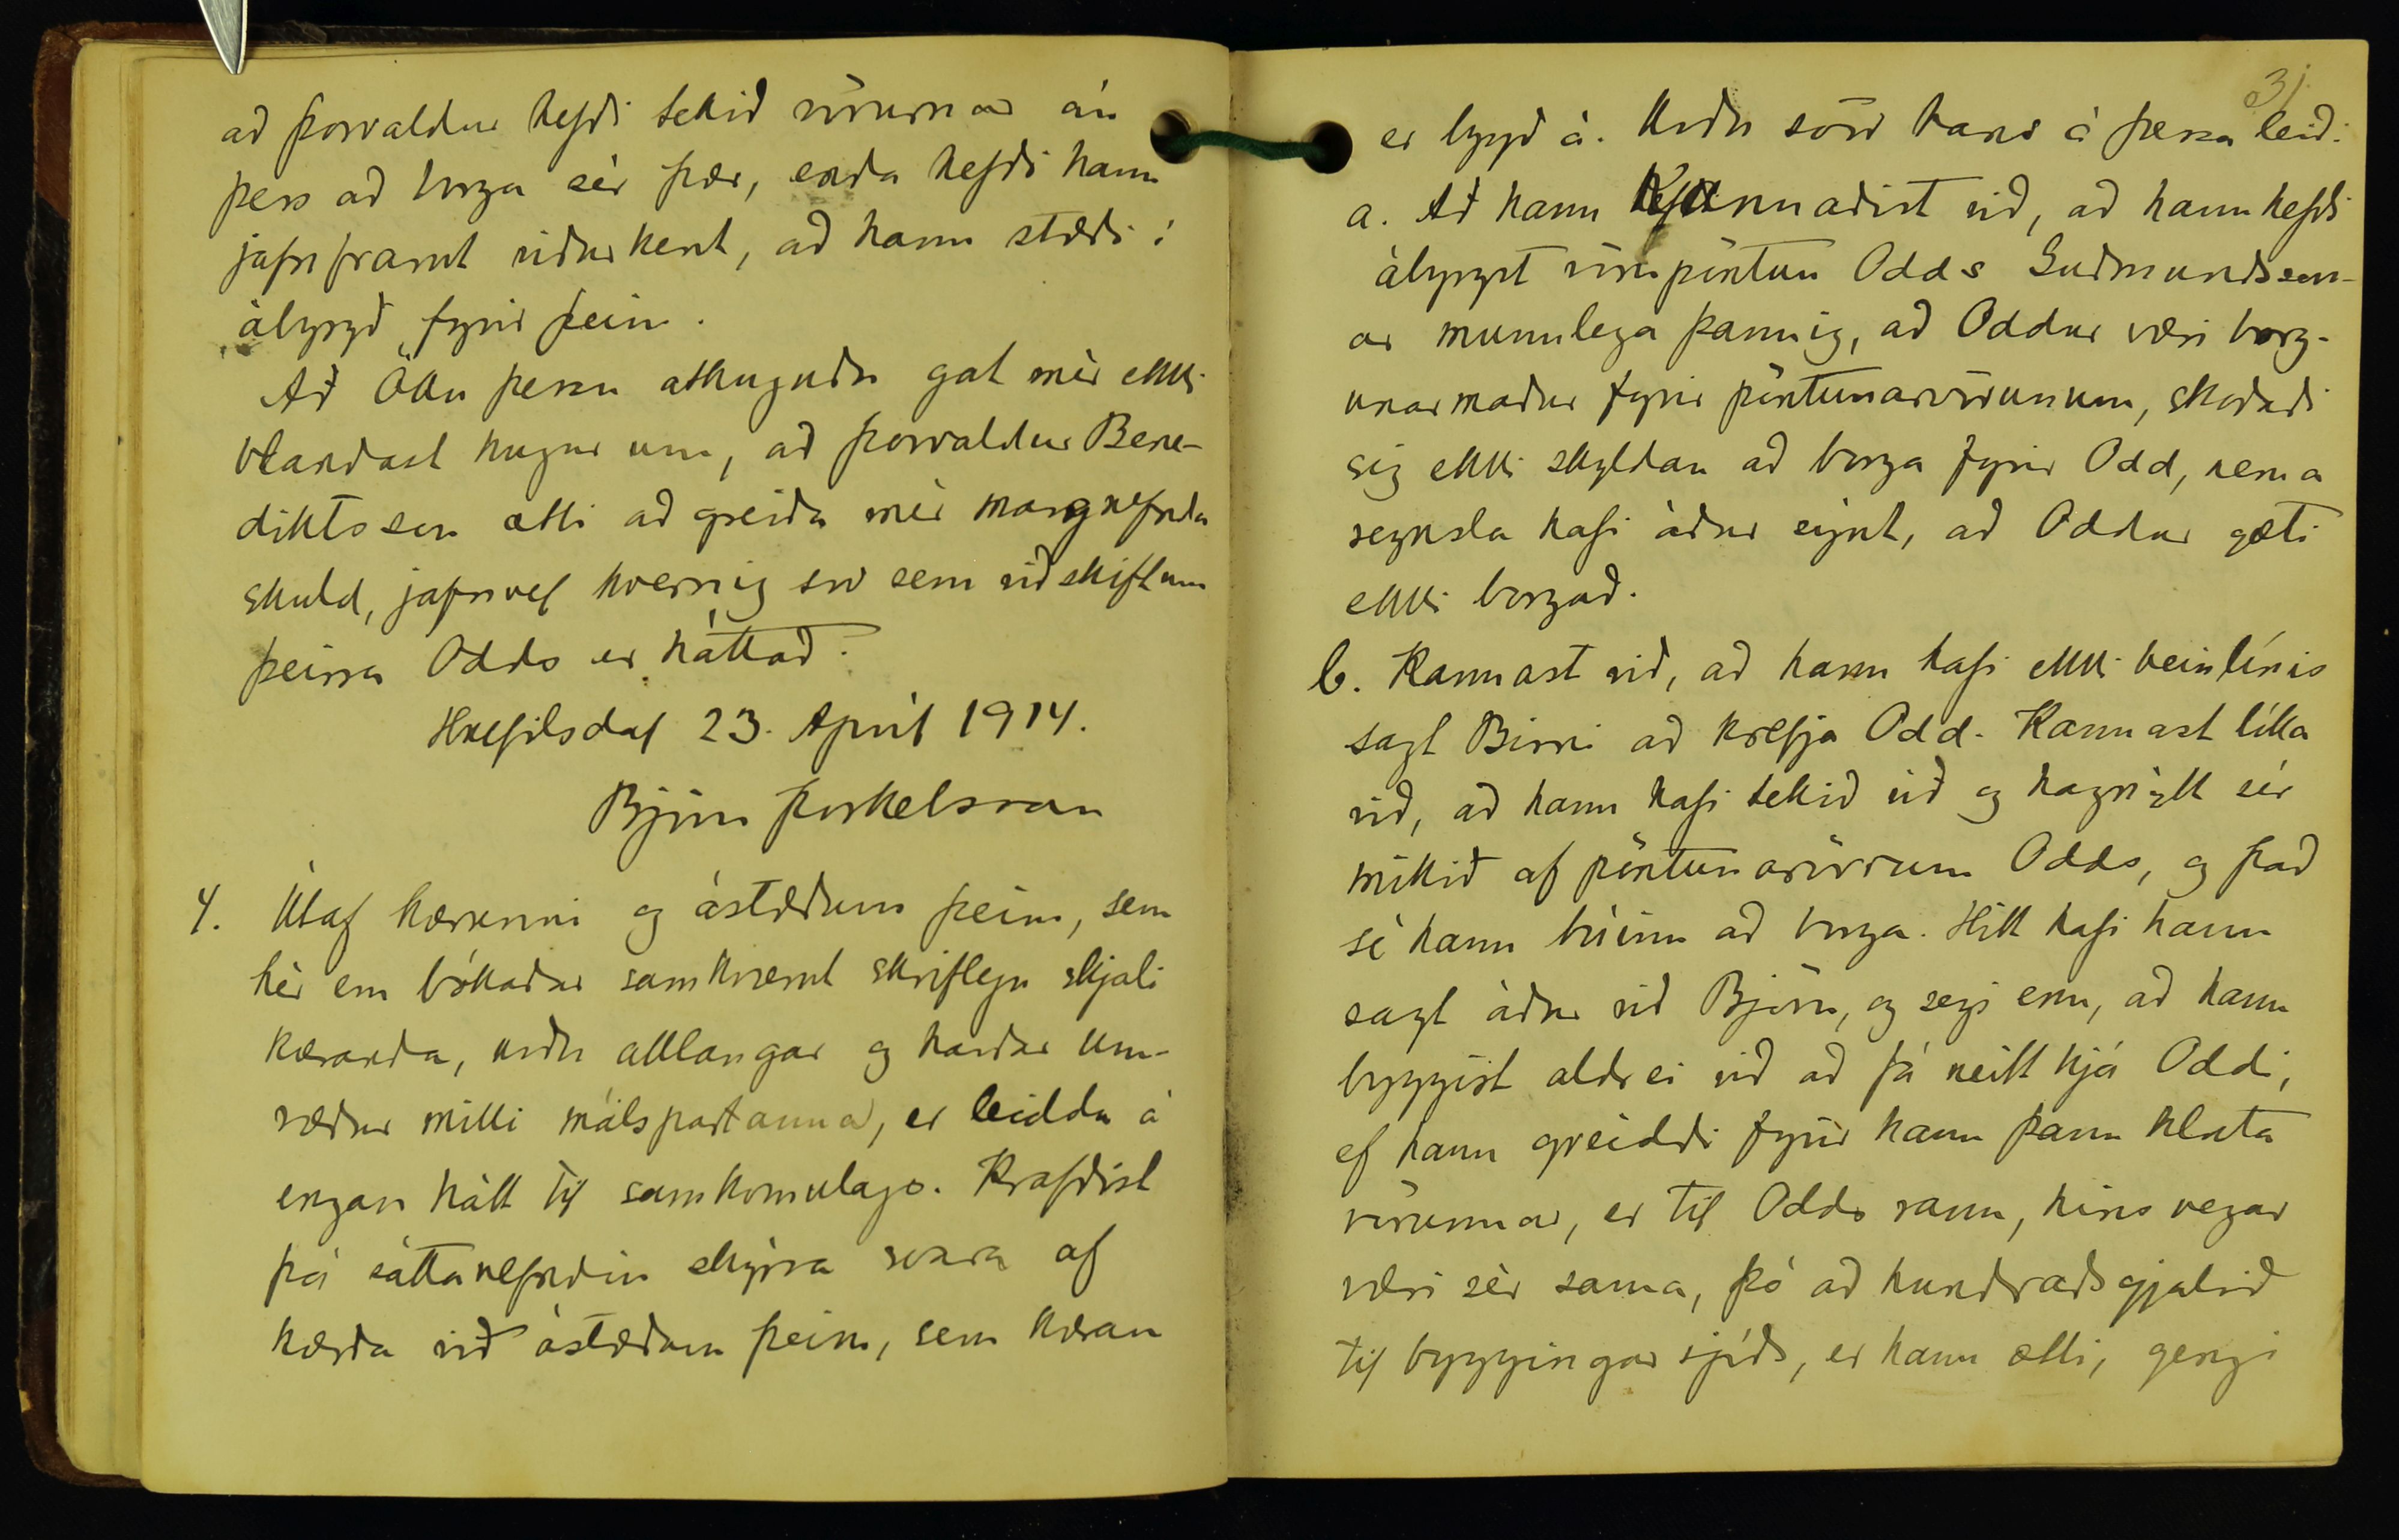 að Þorvaldur hefði tekið vörurnar án
þess að borga sér þær, enda hefði hann
jafnframt viðurkent, að hann stæði í
ábyrgð fyrir þeim.
Að öllu þessu athuguðu gat mér ekki
blandast hugur um, að Þorvaldur Bene-
diktsson ætti að greiða mér margnefnda
skuld, jafnvel hvernig svo sem viðskiftum
þeirra Odds er háttað.
Hnefilsdal 23. Apríl 1914.
Björn Þorkelsson
4. Útaf kærunni og ástæðum þeim, sem
hér eru bókaðar samkvæmt skriflegu skjali
kæranda, urðu alllangar og harðar um-
ræður milli málspartanna, er leiddu á
engan hátt til samkomulags. Krafðist
þá sáttanefndin skýrra svara af
kærða við ástæðum þeim, sem kæran
31
er bygð á. Urðu svör hans á þessa leið:
a. Að hann kannaðist við, að hann hefði
ábyrgst vörupöntun Odds Guðmundsson-
ar munnlega þannig, að Oddur væri borg-
unarmaður fyrir pöntunarvörunum, skoðaði
sig ekki skyldan að borga fyrir Odd, nema
reynsla hafi áður sýnt, að Oddur gæti
ekki borgað.
b. Kannast við, að hann hafi ekki beinlínis
sagt Birni að krefja Odd. Kannast líka
við, að hann hafi tekið við og hagnýtt sér
mikið af pöntunarvörum Odds, og það
sé hann búinn að borga. Hitt hafi hann
sagt áður við Björn, og segi enn, að hann
byggist aldrei við að fá neitt hjá Oddi,
ef hann greiddi fyrir hann þann hluta
vörunnar, er til Odds rann, hins vegar
væri sér sama, þó að hundraðsgjaldið
til byggingarsjóðs, er hann ætti, gengi